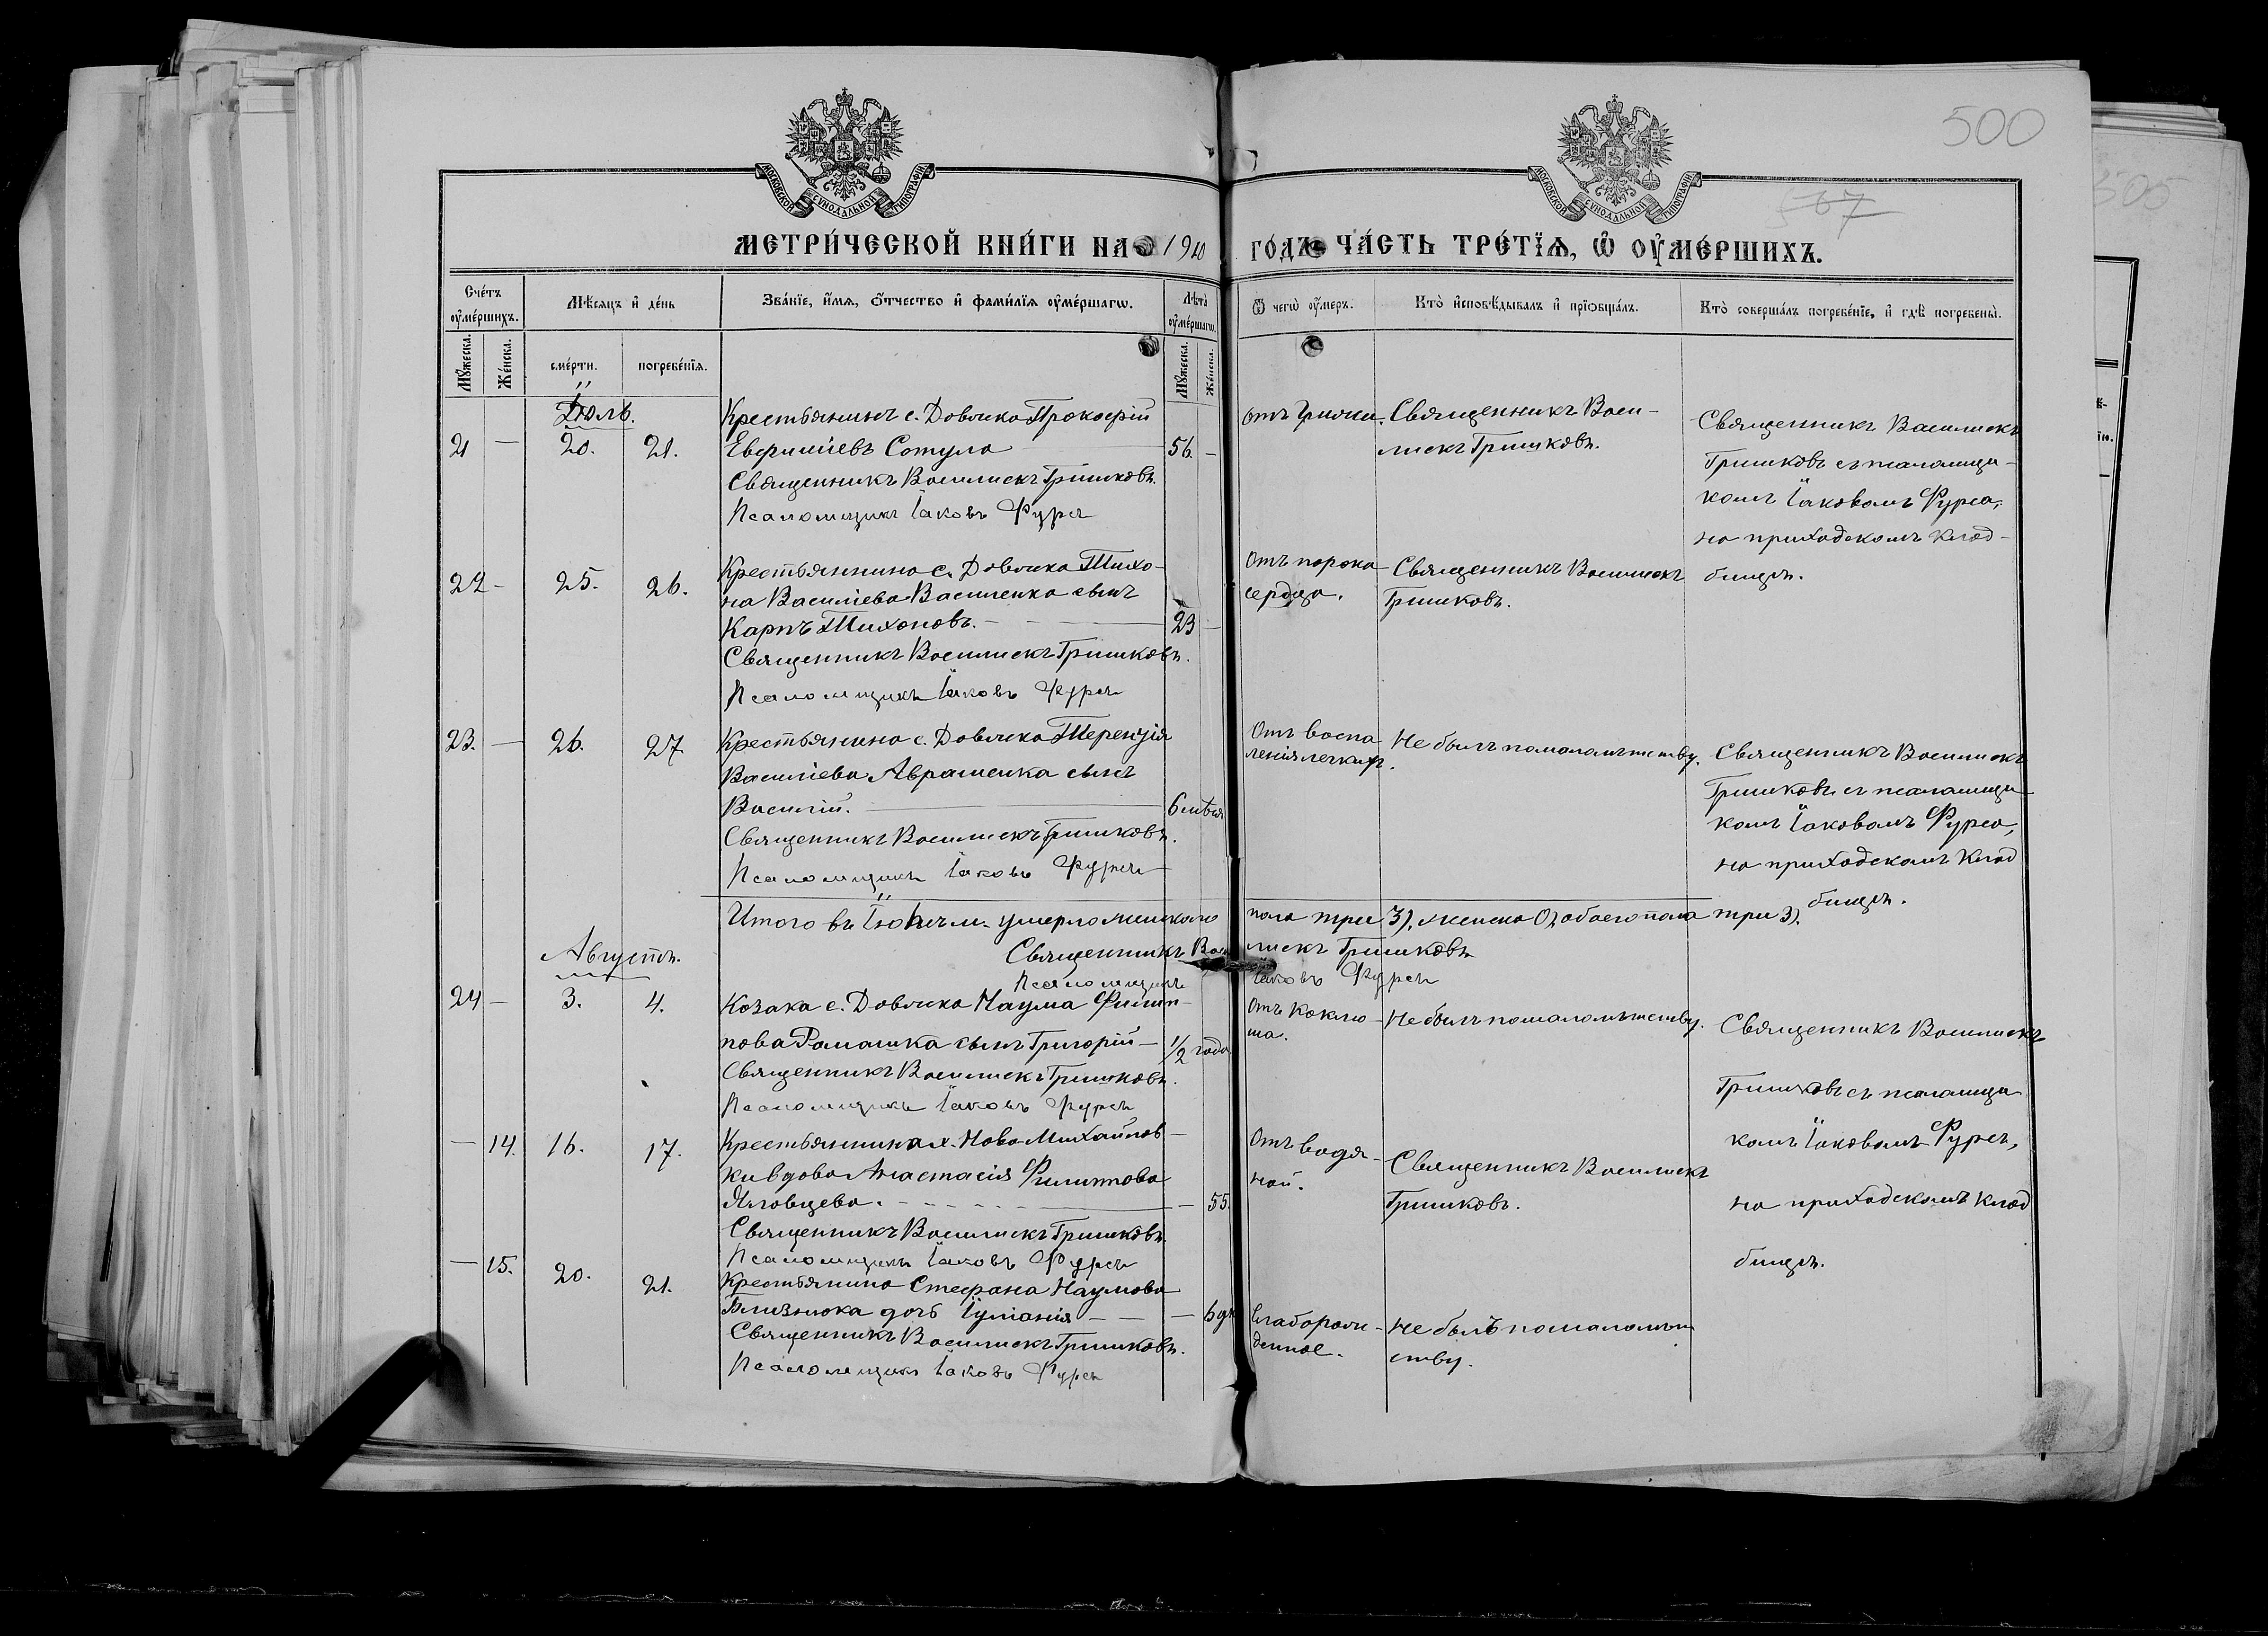 500
505
567
МОСКОВСКОЙ СѴНОДАЛЬНОЙ ТИПОГРАФІИ
МОСКОВСКОЙ СѴНОДАЛЬНОЙ ТИПОГРАФІИ
МЕТРИ́ЧЕСКОЙ КНИ́ГИ НА 1910 ГО́ДЪ ЧА́СТЬ ТРЕ́ТЇѦ, Ѡ҆ ОУ҆МЕ́РШИХЪ.
Сче́тъ оу҆ме́ршихъ.
Мѣ́сяцъ и҆ де́нь
Зва́нїе, и҆́мя, ѻ҆́тчество и҆ фами́лїя оу҆ме́ршагѡ.
Лѣ̀та оу҆ме́ршагѡ.
Ѿ чегѡ̀ оу҆́меръ.
Кто̀ и҆сповѣ́дывалъ и҆ прїѡбща́лъ.
Кто̀ соверша́лъ погребе́нїе, и҆ гдѣ̀ погребены̀.
Мꙋ́жеска.
Же́нска.
сме́рти.
погребе́нїя.
Мꙋ́жеска.
Же́нска.
Іюль.
21 — 20. 21.
Крестьянинъ с. Довляка Прокофій
Евфиміевъ Сотула 56. —
Священникъ Василискъ Гришковъ.
Псаломщикъ Іаковъ Фурса
Священникъ Васи-
лискъ Гришковъ.
Священникъ Василискъ
Гришковъ съ псаломщи-
комъ Іаковомъ Фурса,
на приходскомъ клад-
бищѣ.
22 — 25. 26.
Крестьянина с. Довляка Тихо-
на Василіева Василенка сынъ
Карпъ Тихоновъ. 23 —
Священникъ Василискъ Гришковъ.
Псаломщикъ Іаковъ Фурса
Отъ порока
сердца.
Священникъ Василискъ
Гришковъ.
23. — 26. 27.
Крестьянина с. Довляка Терентія
Василіева Авраменка сынъ
Василій. 6 мѣся
Священникъ Василискъ Гришковъ.
Псаломщикъ Іаковъ Фурса
Отъ воспа
ленія легкихъ.
Не былъ по малолѣтству.
Священникъ Василискъ
Гришковъ съ псаломщи-
комъ Іаковомъ Фурса,
на приходскомъ клад
бищѣ.
Итого въ Іюлѣ м. умерло мужского пола три 3), женска 0, обоего пола три 3).
Священникъ Василискъ Гришковъ
Псаломщикъ Іаковъ Фурса
Августъ.
24 — 3. 4.
Козака с. Довляка Наума Филип-
пова Ромашка сынъ Григорій — 1/2 года
Священникъ Василискъ Гришковъ.
Псаломщикъ Іаковъ Фурса
Отъ коклю-
ша.
Не былъ по малолѣтству.
Священникъ Василискъ
Гришковъ съ псаломщи
комъ Іаковомъ Фурса,
на приходскомъ клад
бищѣ.
— 14. 16. 17.
Крестьянина х. Ново-Михайлов-
ки вдова Анастасія Филиппова
Яловцева. — 55.
Священникъ Василискъ Гришковъ.
Псаломщикъ Іаковъ Фурса
Отъ водя-
ной.
Священникъ Василискъ
Гришковъ.
— 15. 20. 21.
Крестьянина Стефана Наумова
Близнюка дочь Іуліанія — — 6 дн
Священникъ Василискъ Гришковъ.
Псаломщикъ Іаковъ Фурса
Слаборож-
денное.
Не былъ по малолѣт
ству.